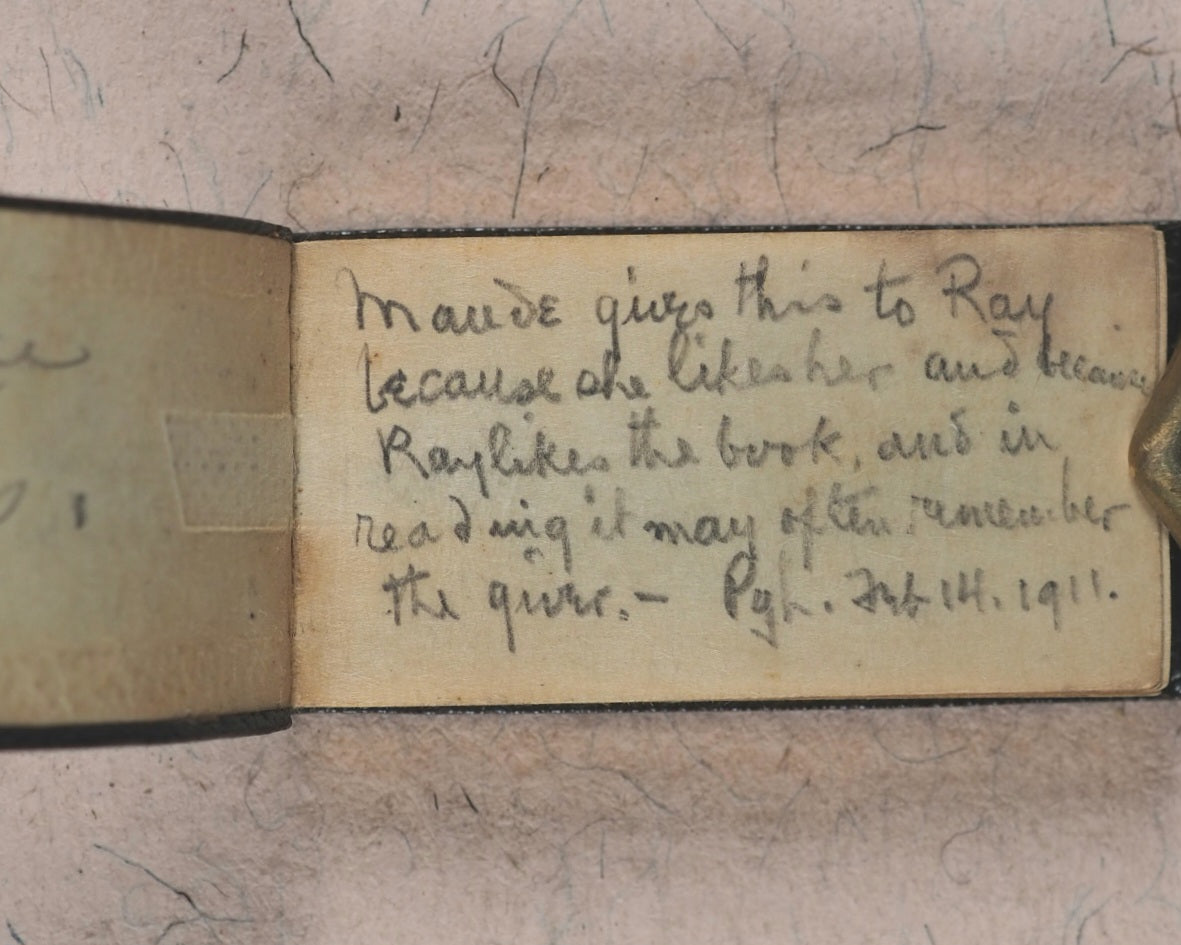 Maude gives this to Ray
because she likes her and because
Ray likes the book, and in
reading it may often remember
the giver.— Pgh. Feb 14. 1911.